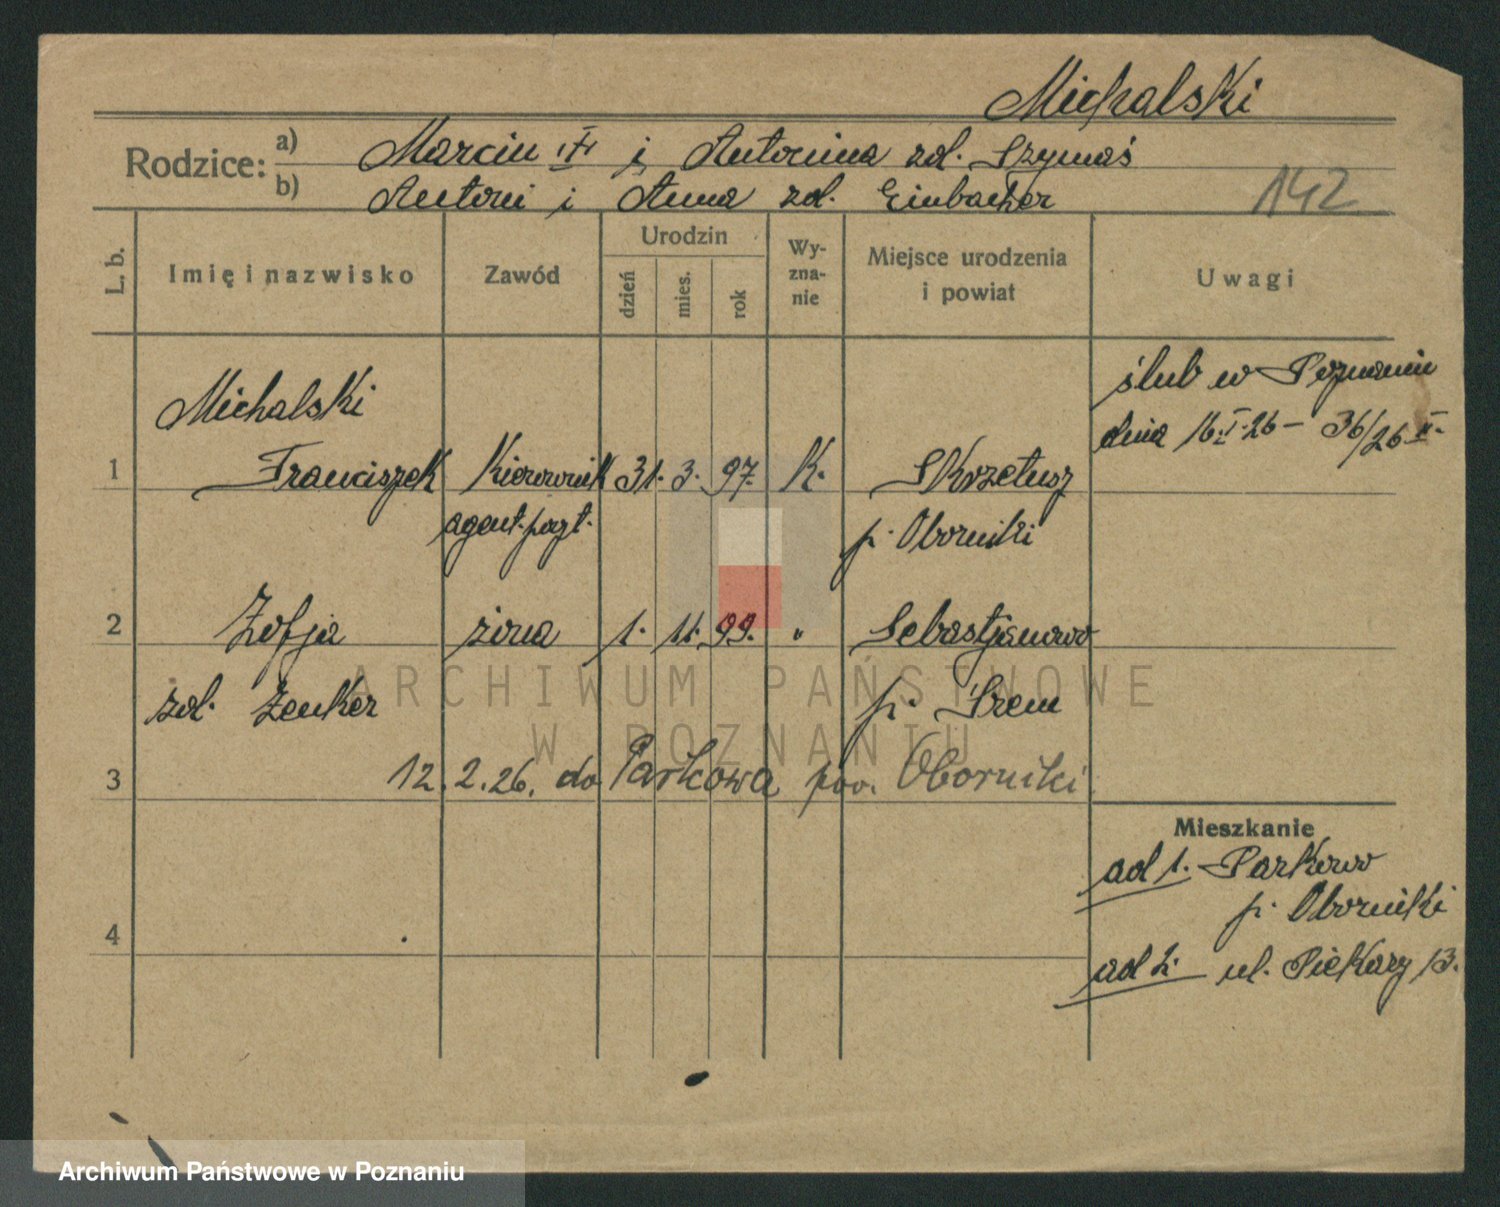 Michalski
Rodzice: a) Marcin i Antonina zd. Szymaś
b) Antoni i Anna zd. Einbacher
142
L. b.
Imię i nazwisko
Zawód
Urodzin
dzień
mies.
rok
Wy-
zna-
nie
Miejsce urodzenia
i powiat
Uwagi
ślub w Poznaniu
dnia 16.I.26 – 36/26 II.
Michalski
1 Franciszek Kierownik 31. 3. 97. K. Skrzetusz
agent. poczt. p. Oborniki
2 Zofja żona 1. 11. 99. " Sebastjanowo
zd. Zenker p. Śrem
3 12.2.26. do Parkowa pow. Oborniki.
4
Mieszkanie
ad 1. Parkowo
p. Oborniki
ad 2. ul. Piekary 13.
ARCHIWUM PAŃSTWOWE
W POZNANIU
Archiwum Państwowe w Poznaniu